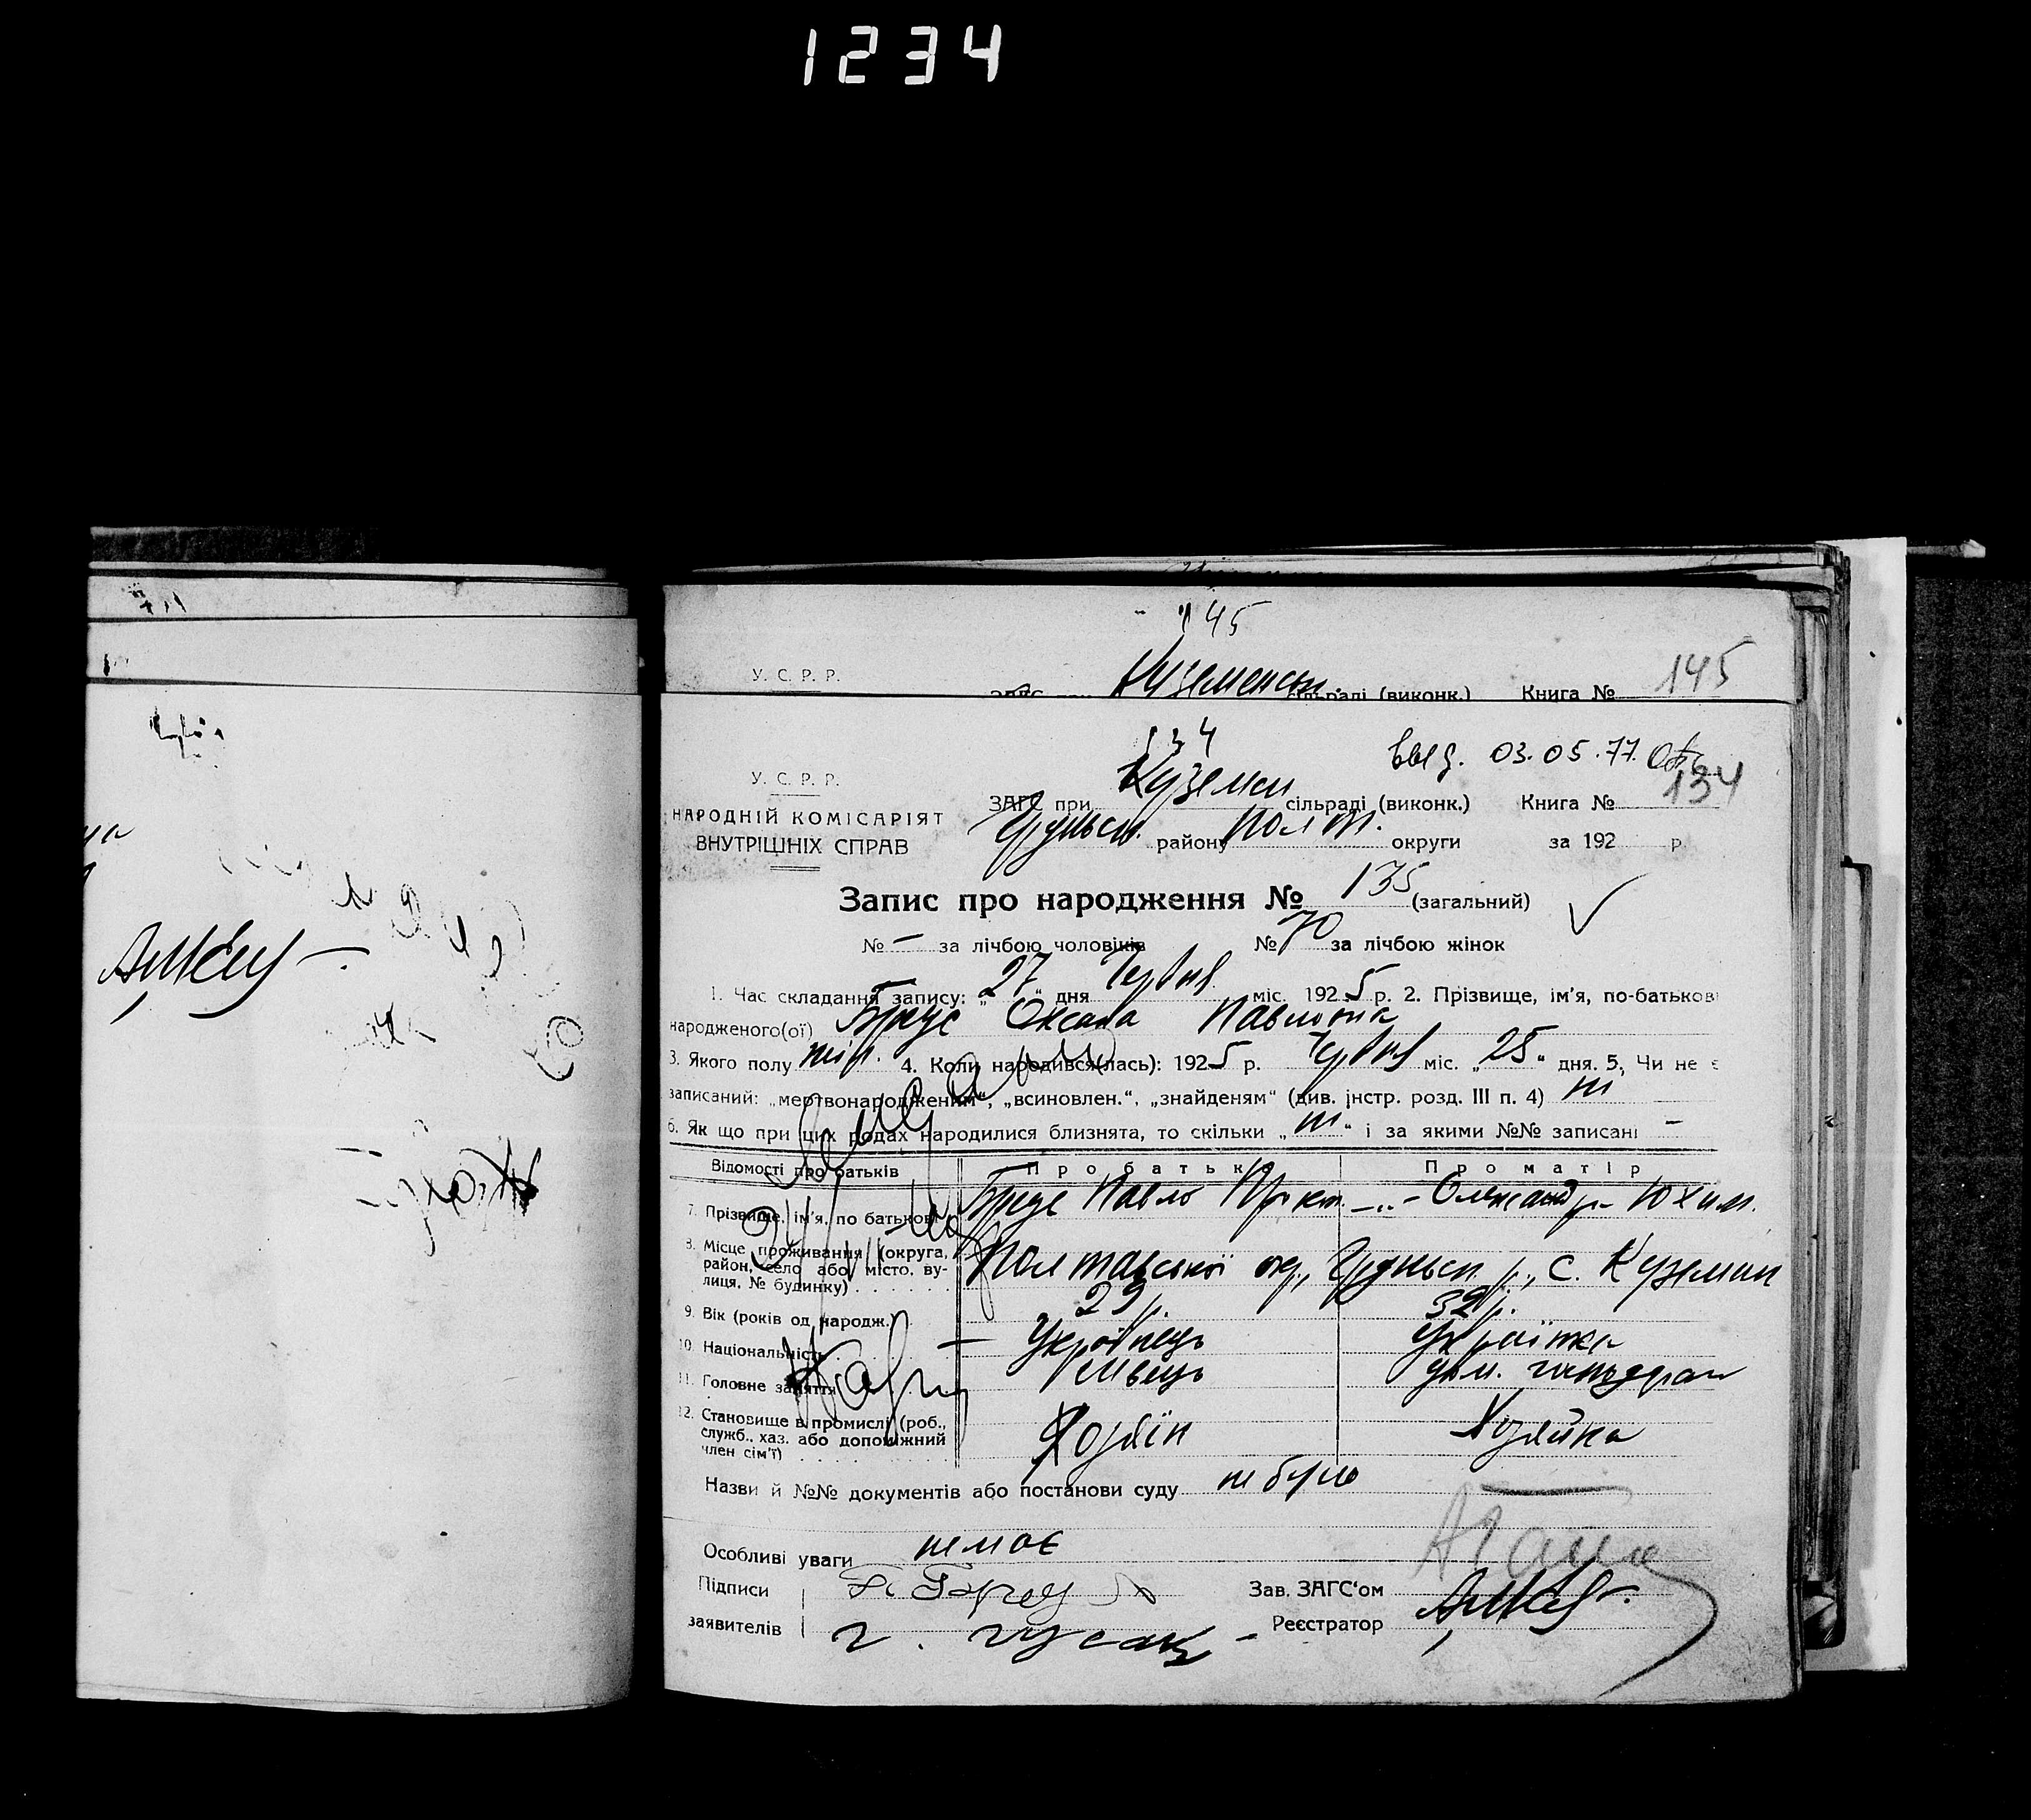 1234
145
У. С. Р. Р.
Куземенськ. сільраді (виконк.) Книга № 145
134
выд. 03.05.77.
У. С. Р. Р.
ЗАГС при Куземен сільраді (виконк.) Книга № 134
НАРОДНІЙ КОМІСАРІЯТ
ВНУТРІШНІХ СПРАВ
Груньск. району Полт. округи за 192 р
Запис про народження № 135 (загальний)
№ — за лічбою чоловіків № 70 за лічбою жінок
1. Час складання запису: „27“ дня Червня міс. 1925 р. 2. Прізвище, ім'я, по-батькові
народженого(ої) Бреус Оксана Павловна
3. Якого полу жін. 4. Коли народився(лась): 1925 р. Червня міс. „25“ дня. 5. Чи не є
записаний: „мертвонародженим“, „всиновлен.“, „знайденям“ (див. інстр. розд. III п. 4) ні
6. Як що при цих родах народилися близнята, то скільки „ні“ і за якими №№ записані —
Відомості про батьків Про батька Про матір
7. Прізвище, ім'я, по батькові Бреус Павло —„— Олександра Юхим.
8. Місце проживання (округа, район, село або місто, вулиця, № будинку) Полтавської окр., Груньск. р., с. Куземин
9. Вік (років од народж.) 29 р. 32 р.
10. Національність Українець Українка
11. Головне заняття Швець дом. господарка
12. Становище в промислі (роб., служб., хаз. або допоміжний член сім'ї) Хозяїн Хозяйка
Назви й №№ документів або постанови суду не було
Особливі уваги немає
Підписи П. Бреус Зав. ЗАГС'ом
заявителів Г. Гусак Реєстратор